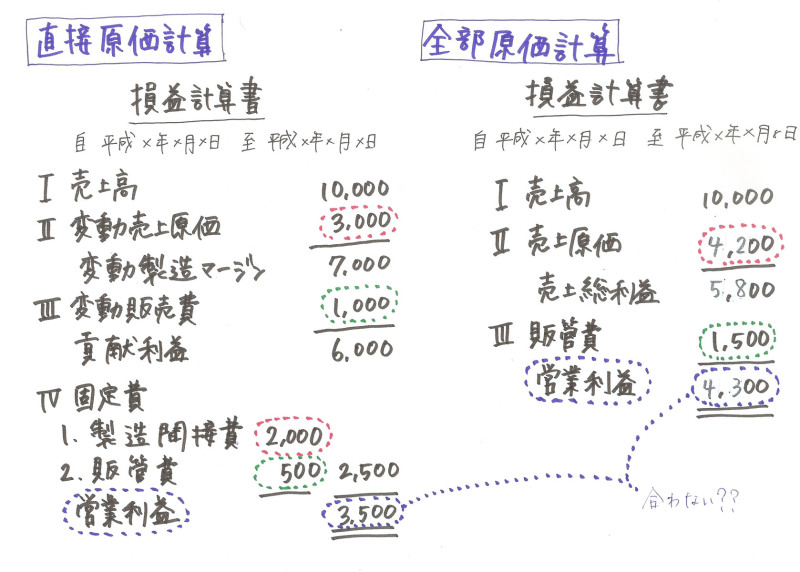 直接原価計算
損益計算書
自 平成×年×月×日 至 平成×年×月×日
I 売上高 10,000
II 変動売上原価 3,000
変動製造マージン 7,000
III 変動販売費 1,000
貢献利益 6,000
IV 固定費
1. 製造間接費 2,000
2. 販管費 500 2,500
営業利益 3,500
全部原価計算
損益計算書
自 平成×年×月×日 至 平成×年×月×日
I 売上高 10,000
II 売上原価 4,200
売上総利益 5,800
III 販管費 1,500
営業利益 4,300
合わない??